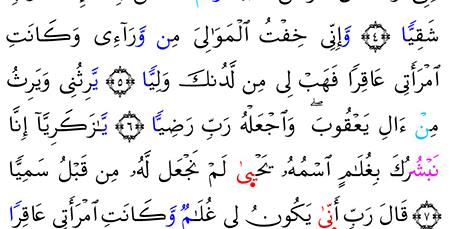 شَقِيًّا ﴿٤﴾ وَإِنِّي خِفْتُ الْمَوَالِيَ مِن وَّرَآءِي وَكَانَتِ
امْرَأَتِي عَاقِرًا فَهَبْ لِي مِن لَّدُنكَ وَلِيًّا ﴿٥﴾ يَّرِثُنِي وَيَرِثُ
مِنْ ءَالِ يَعْقُوبَ ۖ وَاجْعَلْهُ رَبِّ رَضِيًّا ﴿٦﴾ يَٰزَكَرِيَّآ إِنَّا
نُبَشِّرُكَ بِغُلَٰمٍ اسْمُهُۥ يَحْيَىٰ لَمْ نَجْعَل لَّهُۥ مِن قَبْلُ سَمِيًّا
﴿٧﴾ قَالَ رَبِّ أَنَّىٰ يَكُونُ لِي غُلَٰمٌ وَّكَانَتِ امْرَأَتِي عَاقِرًا